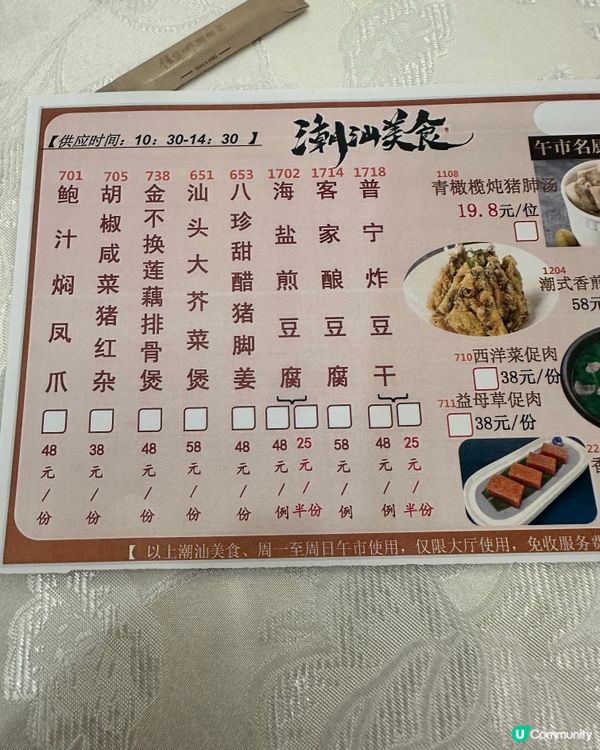 SINCE 1983
【供应时间：10：30-14：30 】
潮汕美食
午市名厨
701
鲍汁焖凤爪
48元/份
705
胡椒咸菜猪红杂
38元/份
738
金不换莲藕排骨煲
48元/份
651
汕头大芥菜煲
58元/份
653
八珍甜醋猪脚姜
48元/份
1702
海盐煎豆腐
48元/例
25元/半份
1714
客家酿豆腐
58元/例
1718
普宁炸豆干
48元/例
25元/半份
1108
青橄榄炖猪肺汤
19.8元/位
1204
潮式香煎
58元
710西洋菜促肉
38元/份
711益母草促肉
38元/份
22
香
【 以上潮汕美食、周一至周日午市使用，仅限大厅使用，免收服务费
U Community